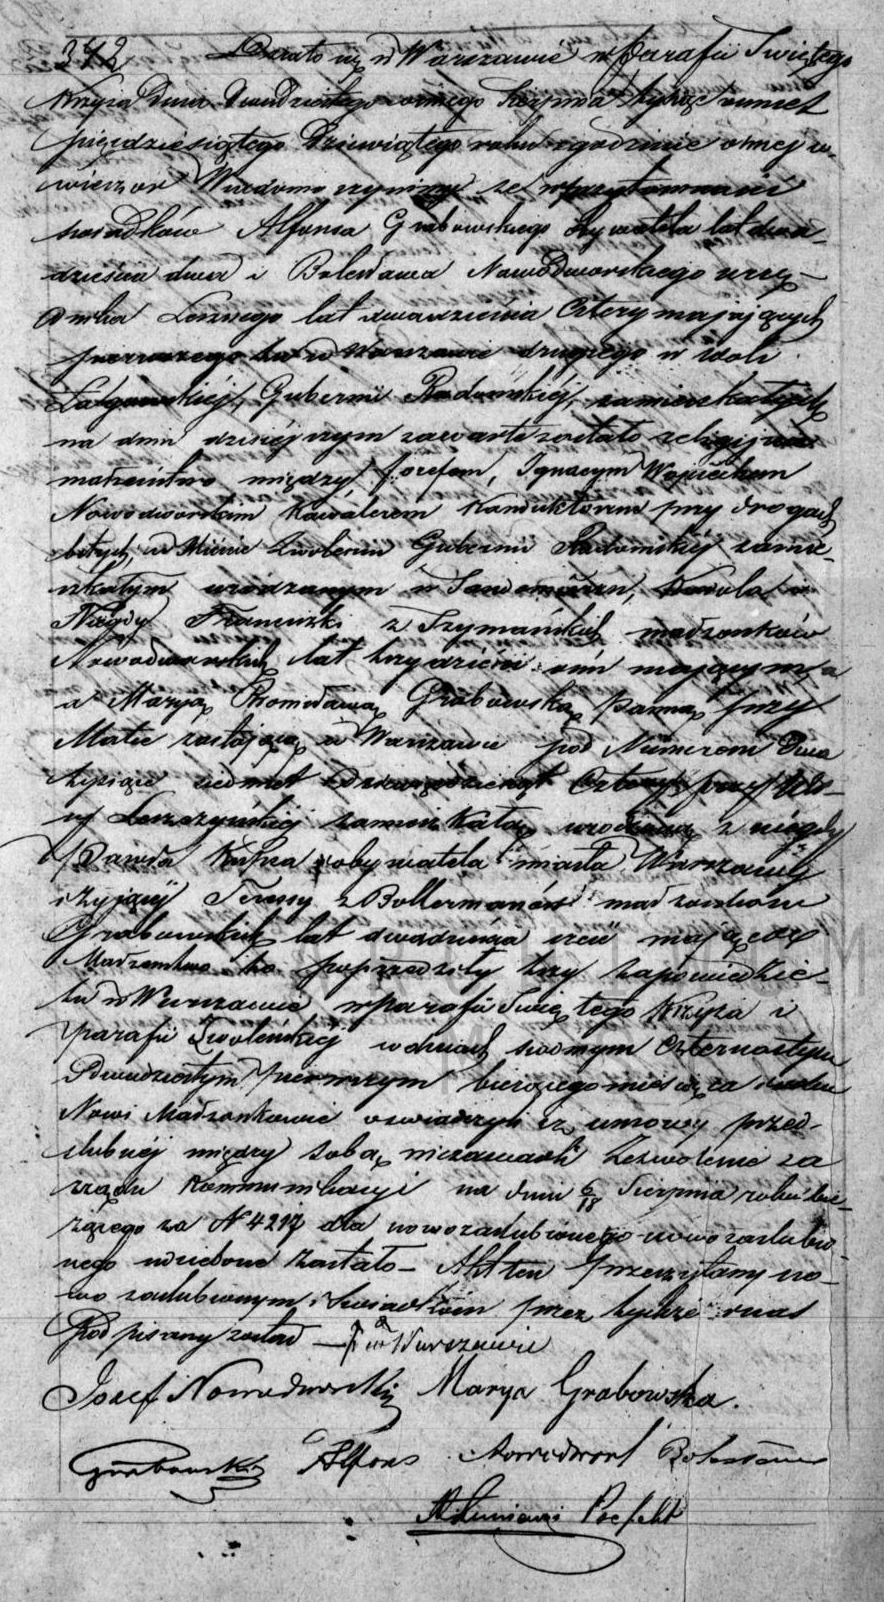 342 Działo się w Warszawie w parafii Świętego
Krzyża dnia dwudziestego ośmego Sierpnia tysiąc ośmset
pięćdziesiątego dziewiątego roku o godzinie ośmej w
wieczor Wiadomo czynimy że w przytomności
świadków Alfonsa Grabowskiego Obywatela lat dwa-
dzieścia dwa i Bolesława Nowodworskiego urzę-
dnika Leśnego lat dwadzieścia Cztery mających
pierwszego tu w Warszawie drugiego w Woli
Gubernii Radomskiéj, zamieszkałych
na dniu dzisiéjszym zawarte zostało religijne
małżeństwo między Jozefem, Ignacym Wojciechem
Nowodworskim Kawalerem Konduktorem przy drogach
bitych, w Mieście Zwoleniu Gubernii Radomskiéj zamie-
szkałym urodzonym w Sandomierzu, Karola i
Franciszki z Szymańskich małżonków
Nowodworskich lat trzydzieści ośm mającym, a
a Maryą Bronisławą Grabowską Panną przy
Matce zostającą w Warszawie pod Numerem Dwa
tysiące siedmset dziewięćdziesiąt Cztery przy Uli-
cy Leszczyńskiéj zamieszkałą urodzoną z niegdy
Pawła Kupca obywatela miasta Warszawy
i żyjącéj Teressy z Bollermanów małżonków
Grabowskich lat dwadzieścia trzy mającą
Małżeństwo to poprzedziły trzy zapowiedzie
tu w Warszawie w parafii Świętego Krzyża i
parafii Zwoleńskiéj w dniach siódmym Czternastym
Dwudziestym pierwszym bieżącego miesiąca i roku
Nowi Małżonkowie oświadczyli iż umowy przed-
ślubnéj między sobą niezawarli Zezwolenie za
rządu Kommunikacyi na dniu 6/18 Sierpnia roku bie-
żącego za N 4217 dla nowozaślubionego nowozaślubio-
nego udzielone zostało – Akt ten przeczytany no-
wo zaślubionym i Świadkom przez tychże i nas
Podpisany został — w Warszawie
Jozef Nowodworski Marya Grabowska.
Grabowski Alfons Nowodworski Bolesław
Prefekt